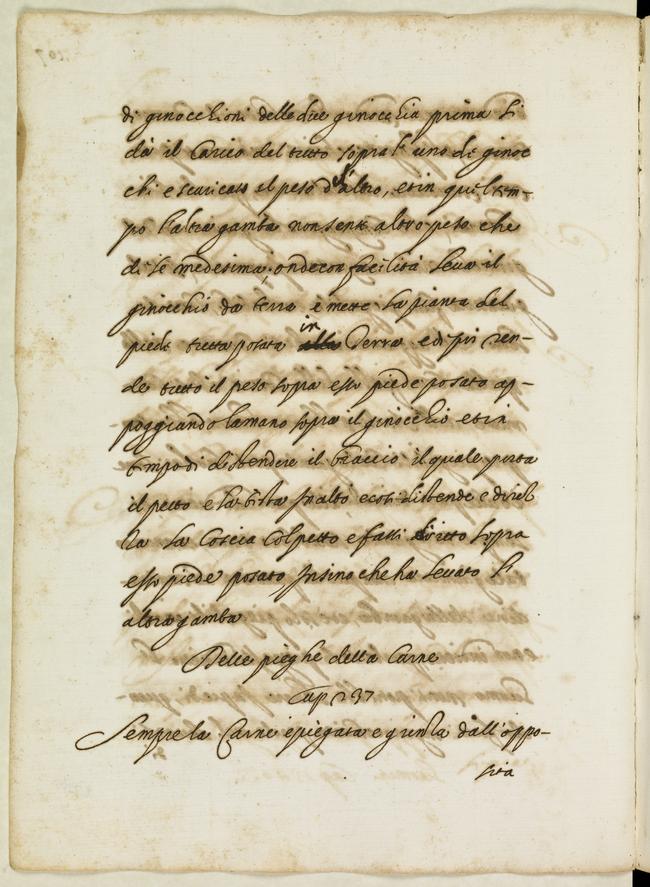 di ginocchioni delle due ginocchia prima si
dà il Carico del tutto sopra l' uno de ginoc
chi e scaricato il peso d'altro, et in quel tem-
po l'altra gamba non sente altro peso che
di se medesima, onde con facilità leva il
ginocchio da terra e mette la pianta del
piede tutta posata in alla Terra e di poi ren-
de tutto il peso sopra esso piede posato ap-
poggiando la mano sopra il ginocchio et in
tempo di distendere il braccio il quale porta
il petto e la testa in alto e cosi distende e driz
la la Coscia col petto e fassi dritto sopra
esso piede posato insino che ha levato l'
altra gamba
Delle pieghe della Carne
Cap 237
Sempre la Carne e piegata e grinza dall'oppo-
sita